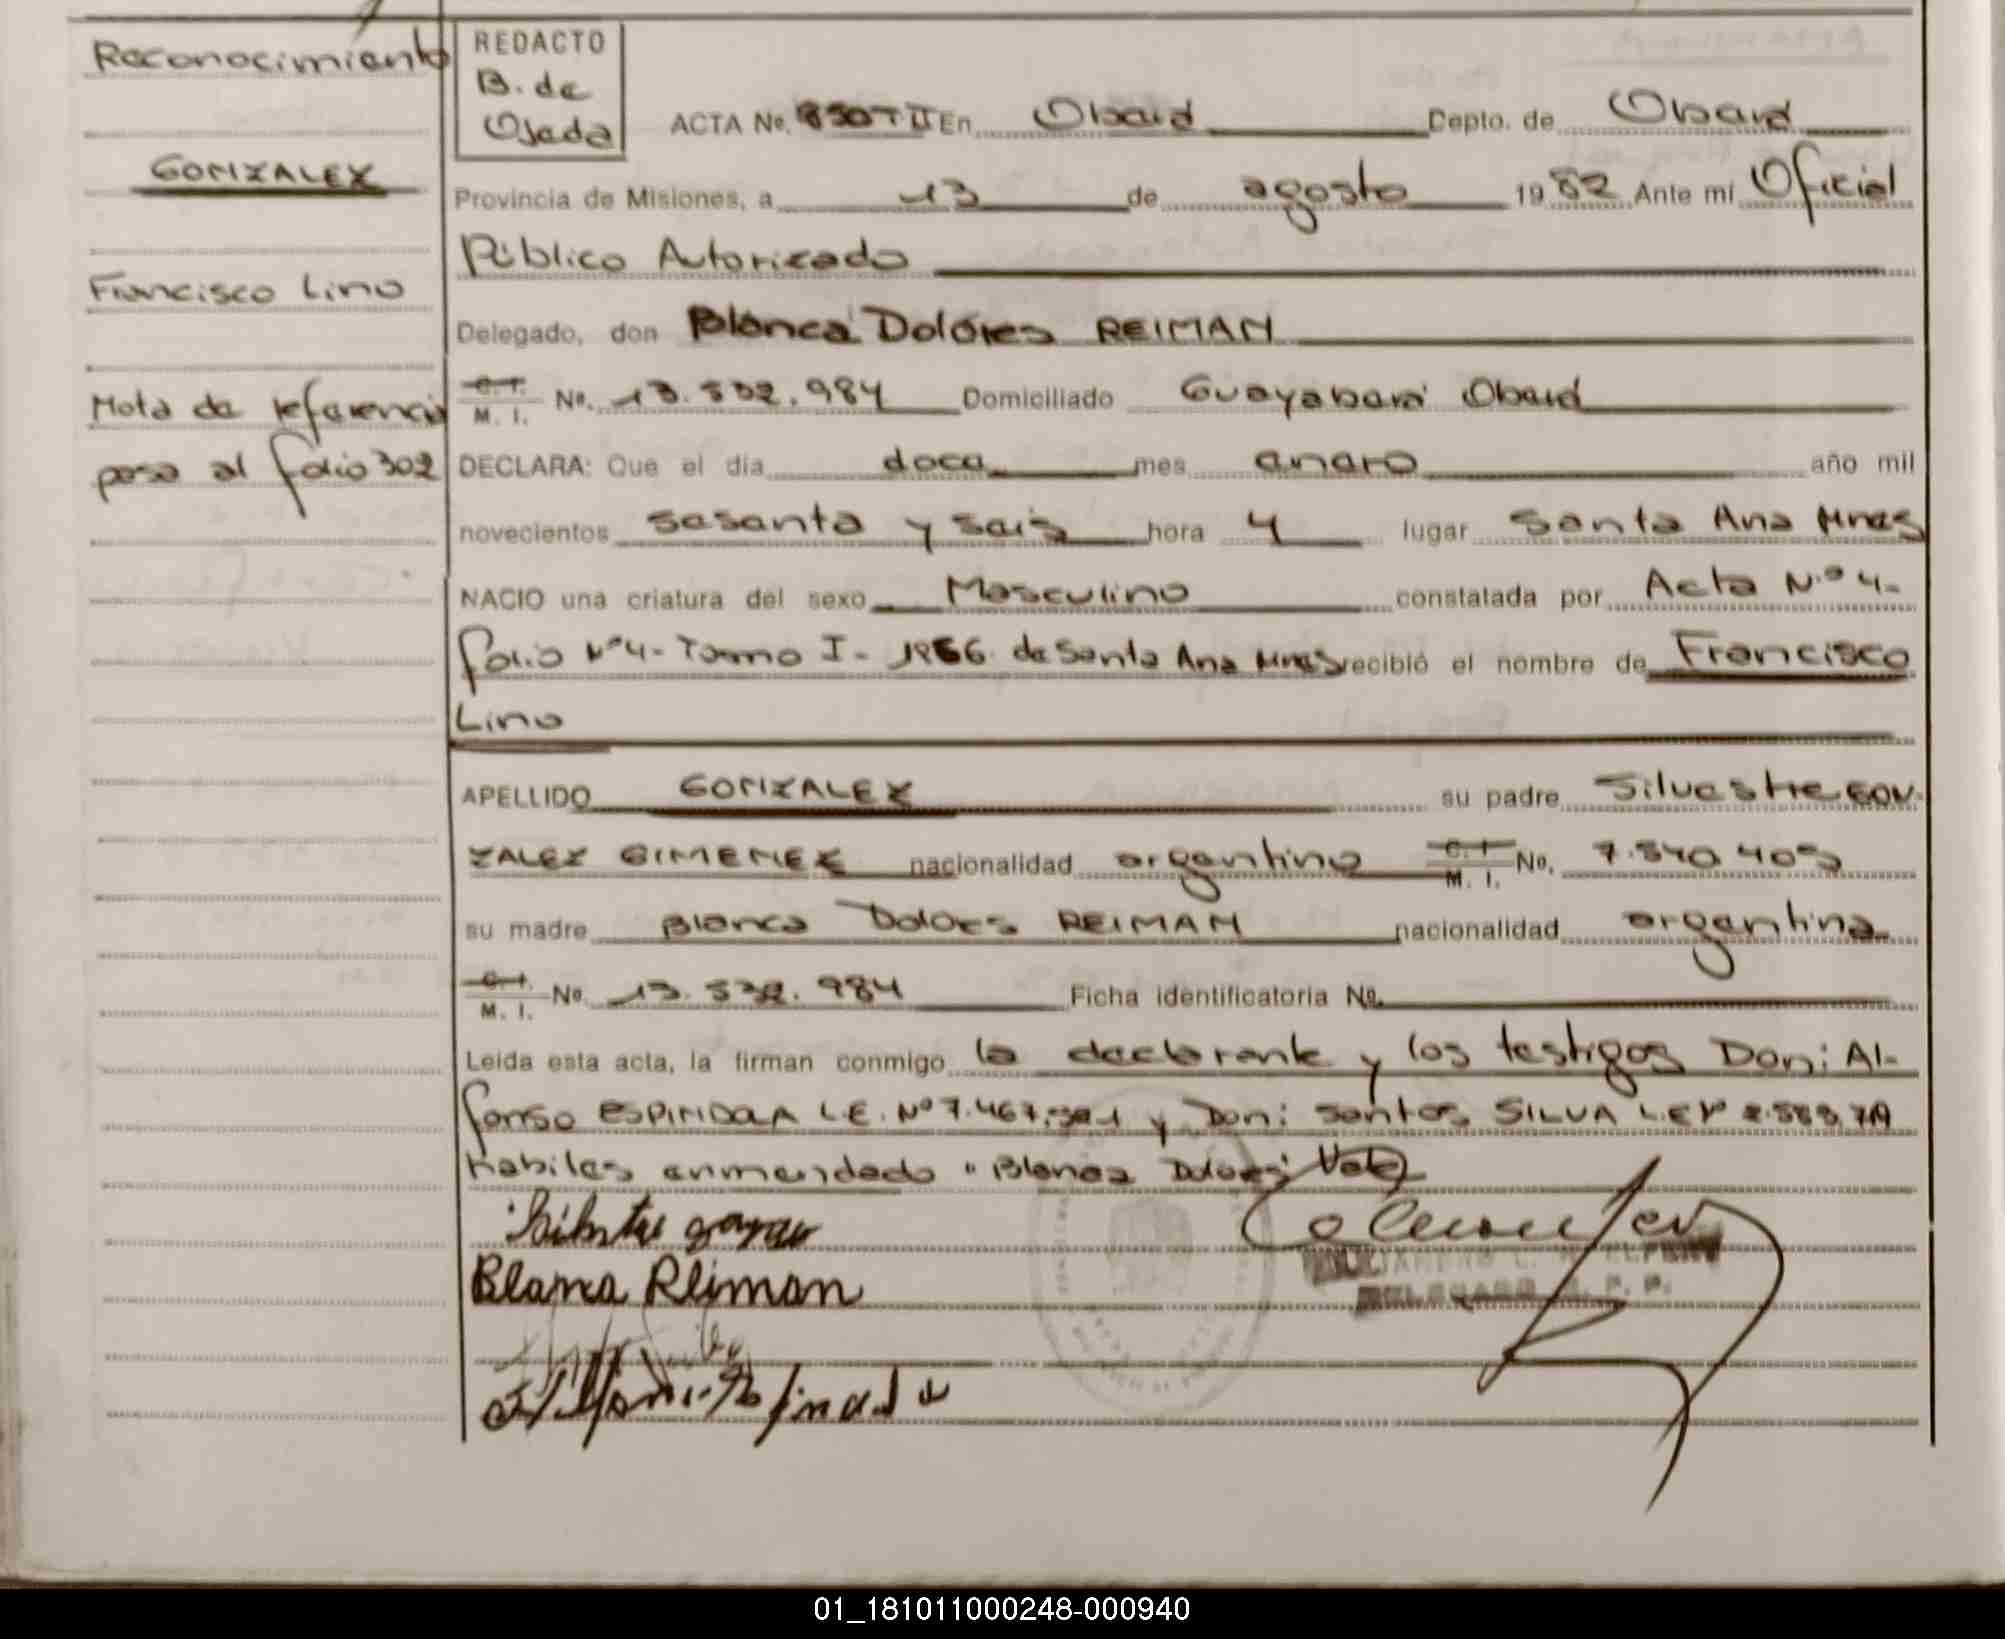 Reconocimiento
GONZALEZ
Francisco Lino
Nota de referencia
pasa al folio 302
REDACTO
B. de
Ojeda
ACTA No. 850 T II En Oberá Depto. de Oberá
Provincia de Misiones, a 13 de agosto 1982 Ante mí Oficial
Público Autorizado
Delegado, don Blanca Dolores REIMAN
C. I. M. I. No. 13.532.984 Domiciliado Guayabera Oberá
DECLARA: Que el día doce mes enero año mil
novecientos sesenta y seis hora 4 lugar Santa Ana Mnes
NACIO una criatura del sexo Masculino constatada por Acta N° 4-
folio N° 4- Tomo I- 1966 de Santa Ana Mnes recibió el nombre de Francisco
Lino
APELLIDO GONZALEZ su padre Silvestre GON-
ZALEZ GIMENEZ nacionalidad argentino C. I. M. I. No. 7.540.405
su madre Blanca Dolores REIMAN nacionalidad argentina
C. I. M. I. No. 13.532.984 Ficha identificatoria No.
Leida esta acta, la firman conmigo la declarante y los testigos Don: Al-
fonso ESPINDOLA L.E. N° 7.467. y Don: Santos SILVA L.E N°
habiles enmendado "Blanca Dolores" Vale
Blanca Reiman
DELEGADO R. P. P.
01_181011000248-000940